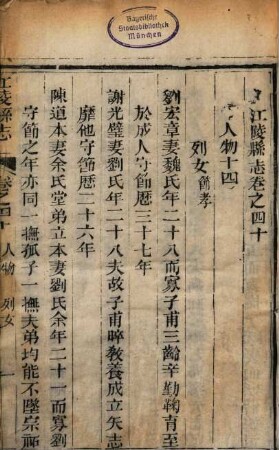 Bayerische
Staatsbibliothek
München
江陵縣志卷之四十
人物十四
列女節孝
劉宏章妻魏氏年二十八而寡子甫三齡辛勤鞠育至
於成人守節歷三十七年
謝光璧妻劉氏年二十八夫故子甫晬教養成立矢志
靡他守節歷二十六年
陳道本妻余氏堂弟立本妻劉氏余年二十一而寡劉
守節之年亦同一撫孤子一撫夫弟均能不墜宗祧
江陵縣志
卷之四十
人物
列女
一